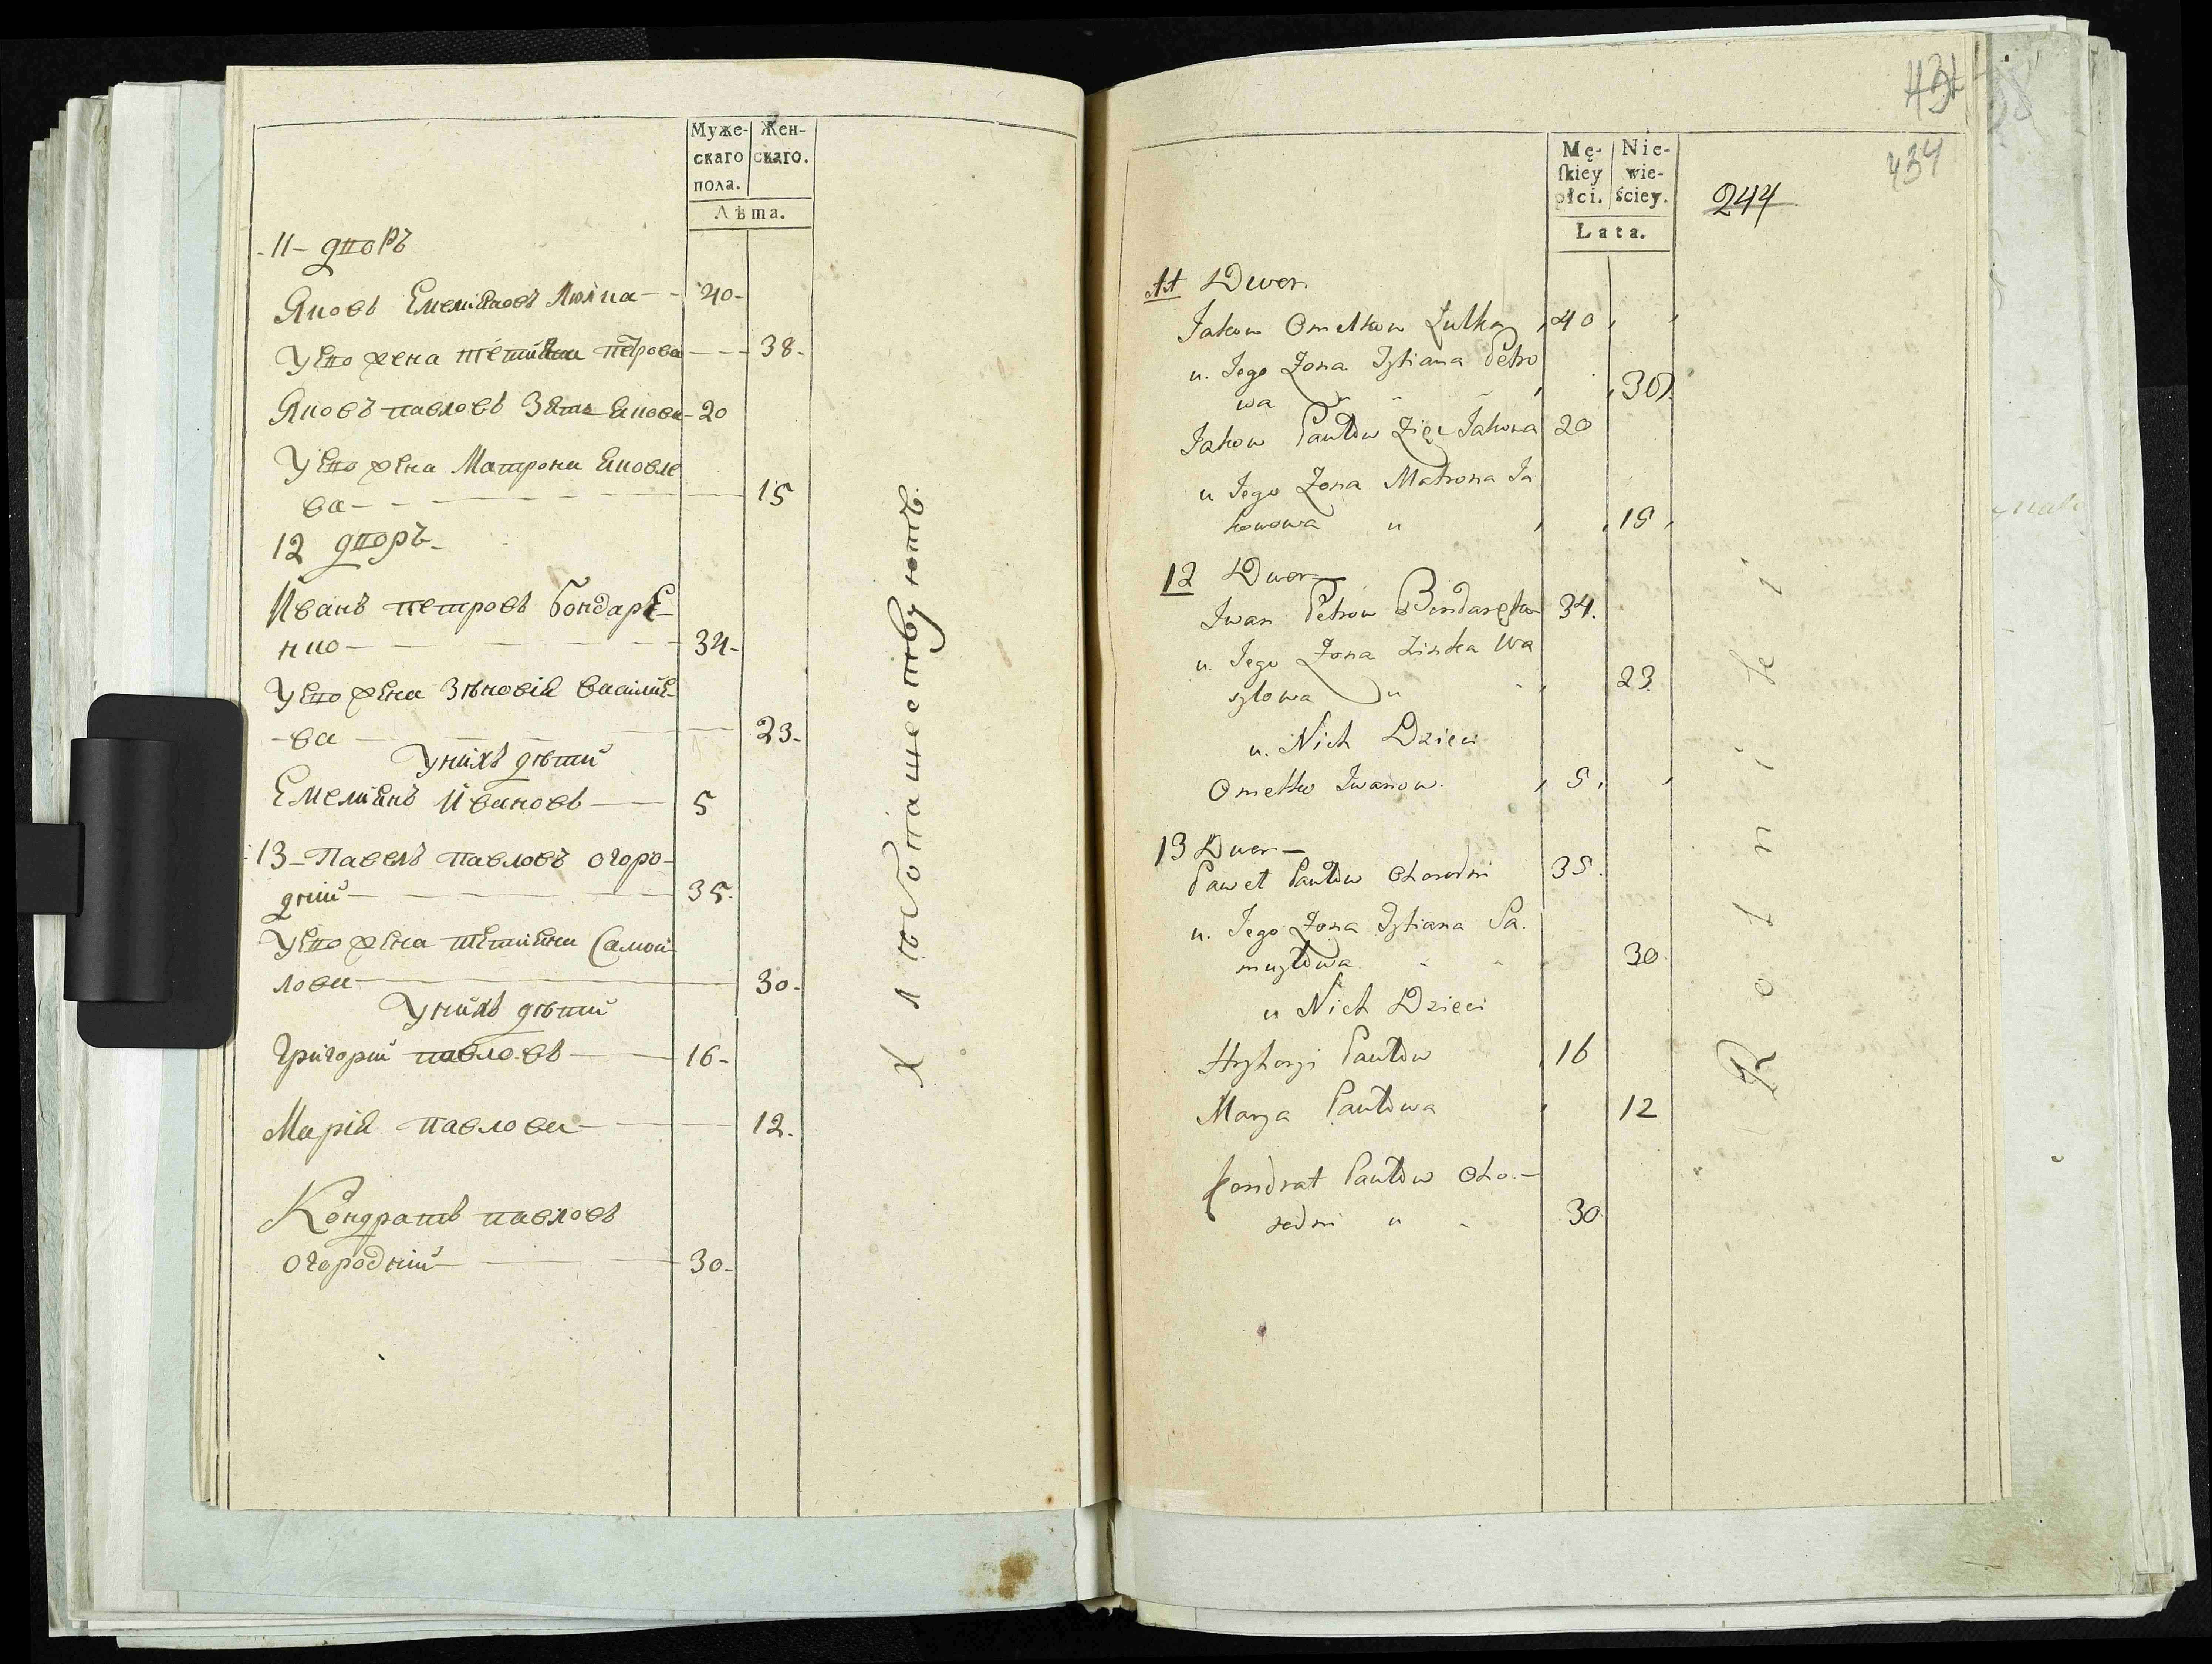 Муже- Жен-
скаго скаго.
пола.
Лѣта.
11 - дворъ
Яковъ Емельяновъ Люлка - 40 -
Уево жена тетияна петрова - 38 -
Яковъ павловъ Зять Якова - 20
Уево жена Матрона Яковле
ва - 15
12 дворъ -
Иванъ петровъ бондарЕ-
нко - 34 -
Уево жена Зѣновія василиЕ-
- ва - 23 -
Унихъ дѣти
Емелиянъ Ивановъ - 5
13 - Павелъ павловъ огоро-
дній - 35 -
Уево жена тетияна Самой
лова - 30 -
Унихъ дѣти
Григорий павловъ - 16 -
Марія павлова - 12 .
Кондратъ павловъ
огородній - 30 -
Хлѣбопашествуютъ
434
244
Mę- Nie-
skiey wie-
płci. ściey.
Lata.
11 Dwor.
Jakow Omelkow Lulka 40
u. Jego Zona Tytiana Petro
wa 38
Jakow Pawłow Zięć Jakowa 20
u Jego Zona Matrona Ja
kowowa " 15
12 Dwor -
Iwan Petrow Bondaręko 34.
u. Jego Zona Zinka Wa
sylowa " 23.
u. Nich Dzieci
Omelko Iwanow. 5
13 Dwor -
Paweł Pawłow Ohorodni 35.
u. Jego Zona Tytiana Sa.
muyłowa 30
u Nich Dzieci
Hryhoryi Pawłow 16
Marya Pawłowa 12
Kondrat Pawłow Oho. -
rodni " 30.
Rolniki